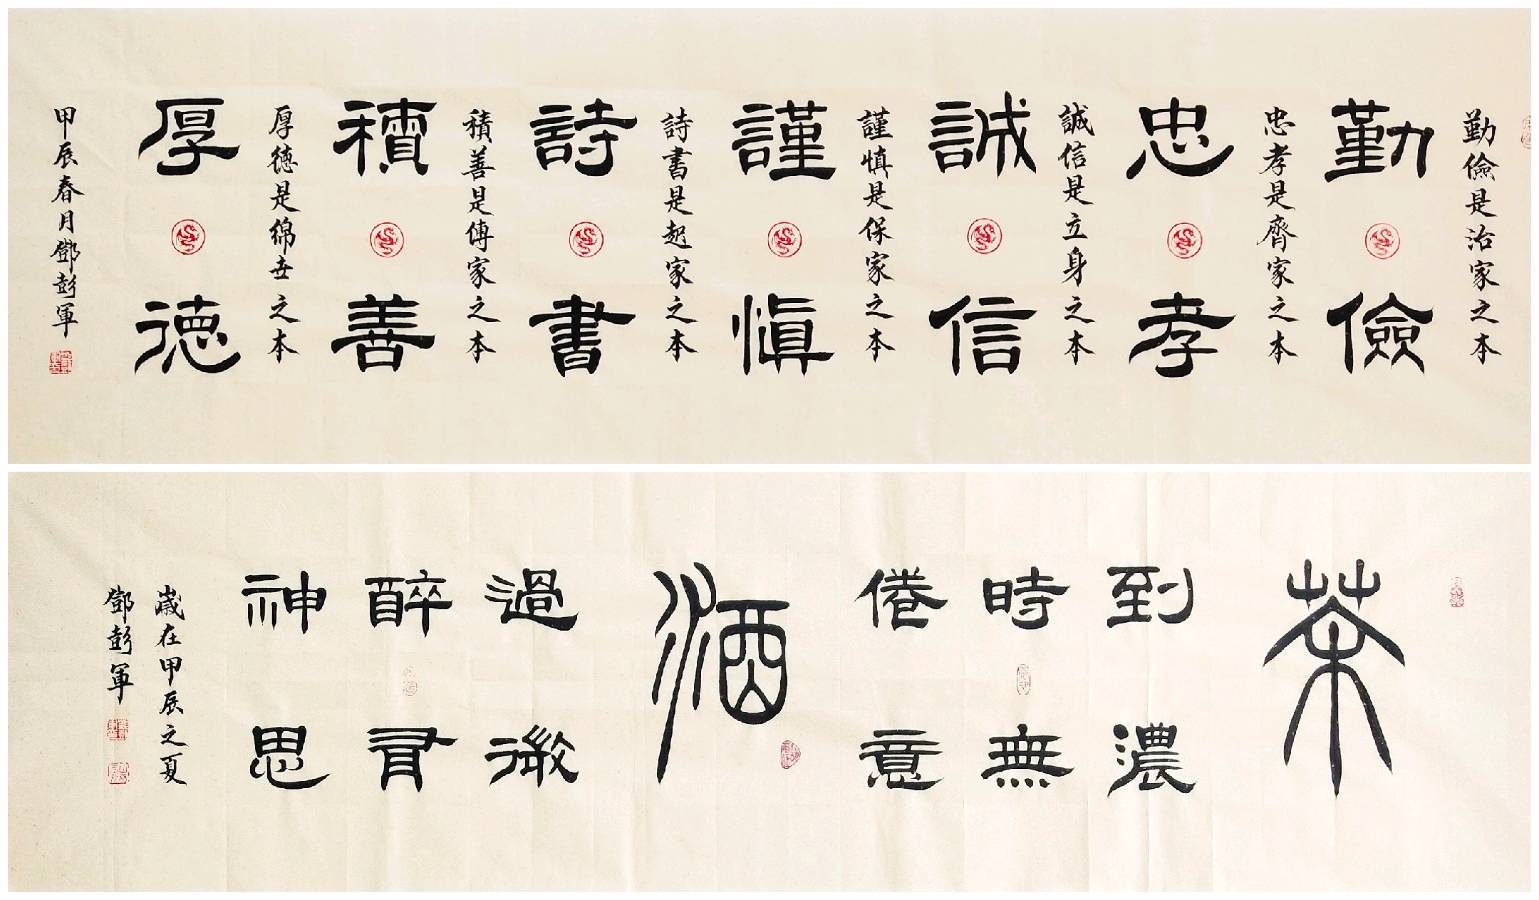 勤儉是治家之本
勤儉
忠孝是齊家之本
忠孝
誠信是立身之本
誠信
謹慎是保家之本
謹慎
詩書是起家之本
詩書
積善是傳家之本
積善
厚德是綿世之本
厚德
甲辰春月鄧彭軍
茶
到濃
時無
倦意
酒
過微
醉有
神思
歲在甲辰之夏
鄧彭軍